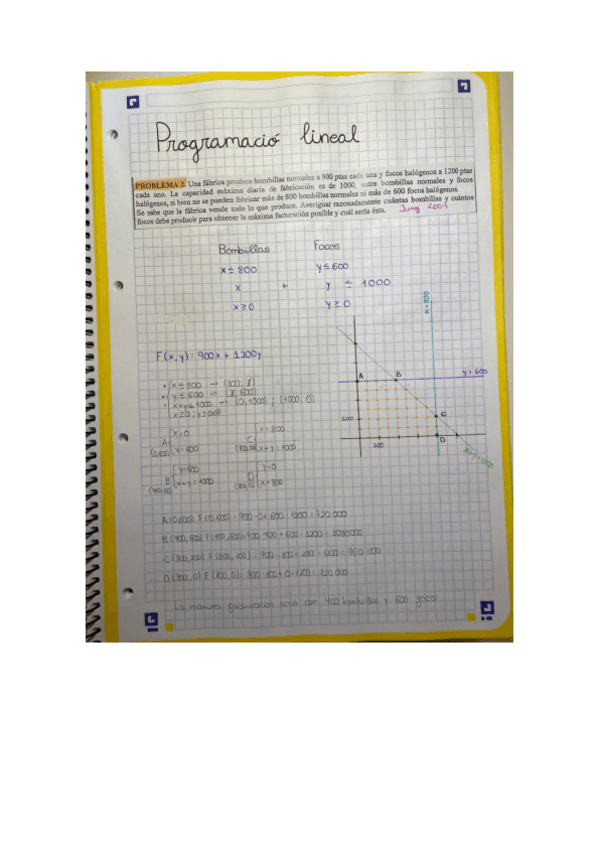 Programació lineal
PROBLEMA 2. Una fábrica produce bombillas normales a 900 ptas cada una y focos halógenos a 1200 ptas
cada uno. La capacidad máxima diaria de fabricación es de 1000, entre bombillas normales y focos
halógenos, si bien no se pueden fabricar más de 800 bombillas normales ni más de 600 focos halógenos.
Se sabe que la fábrica vende todo lo que produce. Averiguar razonadamente cuántas bombillas y cuántos
focos debe producir para obtener la máxima facturación posible y cuál sería ésta. Juny 2001
Bombillas Focos
x ≤ 800 y ≤ 600
x + y ≤ 1000
x ≥ 0 y ≥ 0
x = 800
F(x,y): 900x + 1200y
A B y = 600
x ≤ 800 → (800,
y ≤ 600 → 600)
x + y ≤ 1000 → (0,1000) ; (1000, 0)
x ≥ 0 ; y ≥ 0
200 C
A x = 0 C x = 800
(0,600) y = 600 x + y = 1000
D
200
x + y = 1000
B y = 600 D y = 0
x + y = 1000 x = 800
A (0,600) F (0,600) = 900 · 0 + 600 · 1200 = 720 000
B (400, 600) F (400, 600) = 900 · 400 + 600 · 1200 = 1080000
C (800, 200) F (800, 200) = 900 · 800 + 200 · 1200 = 960 000
D (800, 0) F (800, 0) = 900 · 800 + 0 · 1200 = 720 000
La máxima facturación sería con 400 bombillas y 600 focos